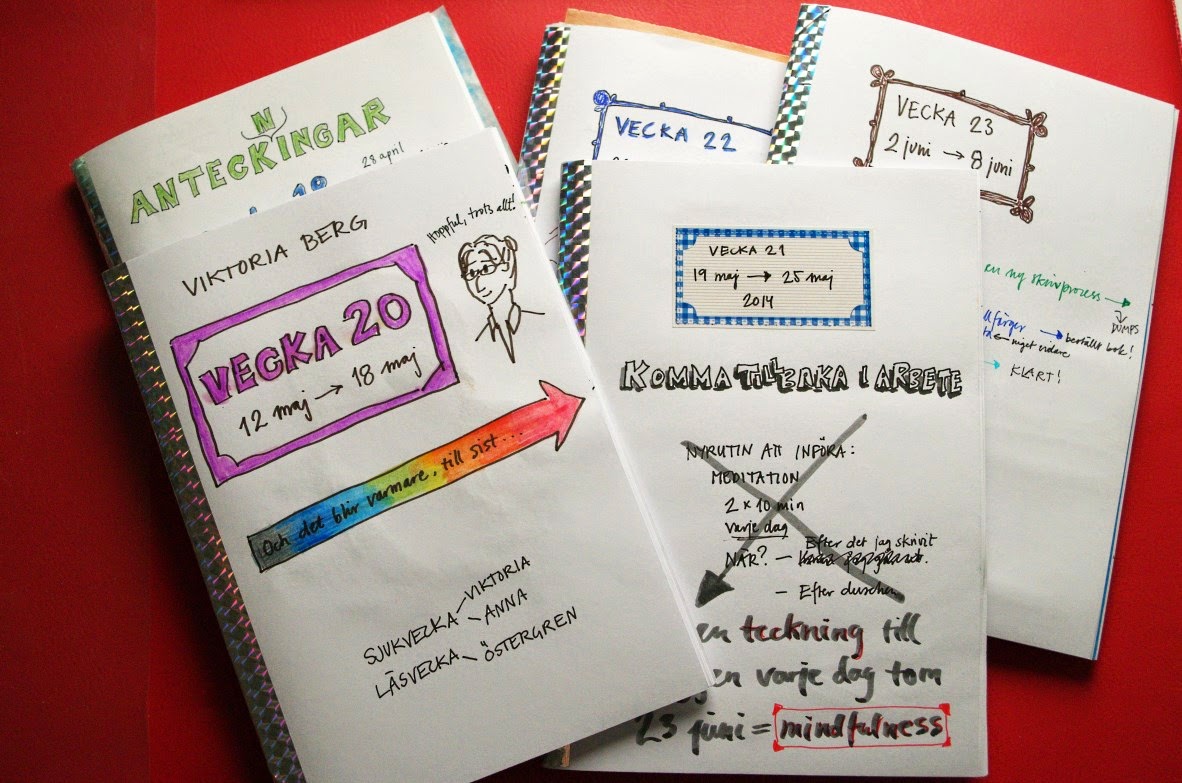 N
ANTECKINGAR
28 april
VIKTORIA BERG
Hoppful, trots allt!
VECKA 20
12 maj → 18 maj
Och det blir varmare, till sist...
SJUKVECKA - VIKTORIA
- ANNA
LÄSVECKA - ÖSTERGREN
VECKA 22
VECKA 21
19 maj → 25 maj
2014
KOMMA TILLBAKA I ARBETE
NY RUTIN ATT INFÖRA:
MEDITATION
2 × 10 min
varje dag
NÄR? - Efter det jag skrivit
- Efter duschen
en teckning till
en varje dag tom
23 juni = mindfulness
VECKA 23
2 juni → 8 juni
en ny skrivprocess →
DUMPS
→ beställt bok!
← inget vidare
→ KLART!